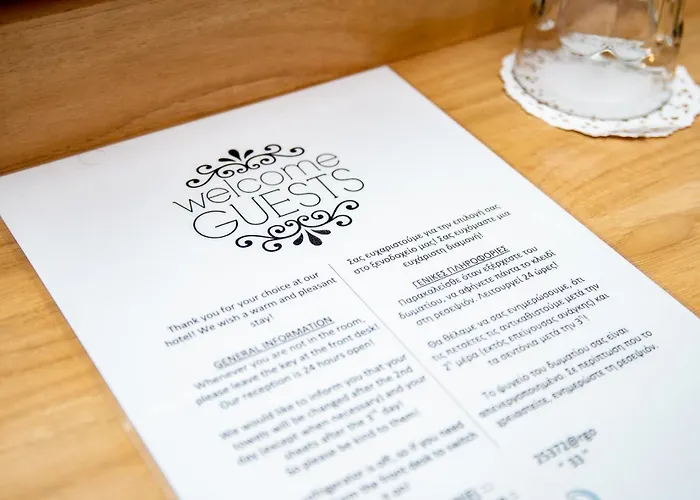 welcome
GUESTS
Thank you for your choice at our
hotel! We wish a warm and pleasant
stay!
GENERAL INFORMATION
Whenever you are not in the room,
please leave the key at the front desk!
Our reception is 24 hours open!
We would like to inform you that your
towels will be changed after the 2nd
day (except when necessary) and your
sheets after the 3rd day!
So please be kind to them!
refrigerator is off, so if you need
the front desk to switch
on!
Σας ευχαριστούμε για την επιλογή σας
στο ξενοδοχείο μας! Σας ευχόμαστε μια
ευχάριστη διαμονή!
ΓΕΝΙΚΕΣ ΠΛΗΡΟΦΟΡΙΕΣ
Παρακαλείσθε όταν εξέρχεστε του
δωματίου, να αφήνετε πάντα το κλειδί
στη ρεσεψιόν. Λειτουργεί 24 ώρες!
Θα θέλαμε να σας ενημερώσουμε, ότι
τις πετσέτες τις αντικαθιστούμε μετά την
2η μέρα (εκτός επείγουσας ανάγκης) και
τα σεντόνια μετά την 3η!
Το ψυγείο του δωματίου σας είναι
απενεργοποιημένο. Σε περίπτωση που το
χρειαστείτε, ενημερώστε τη ρεσεψιόν.
25372@rgo
" 33 "